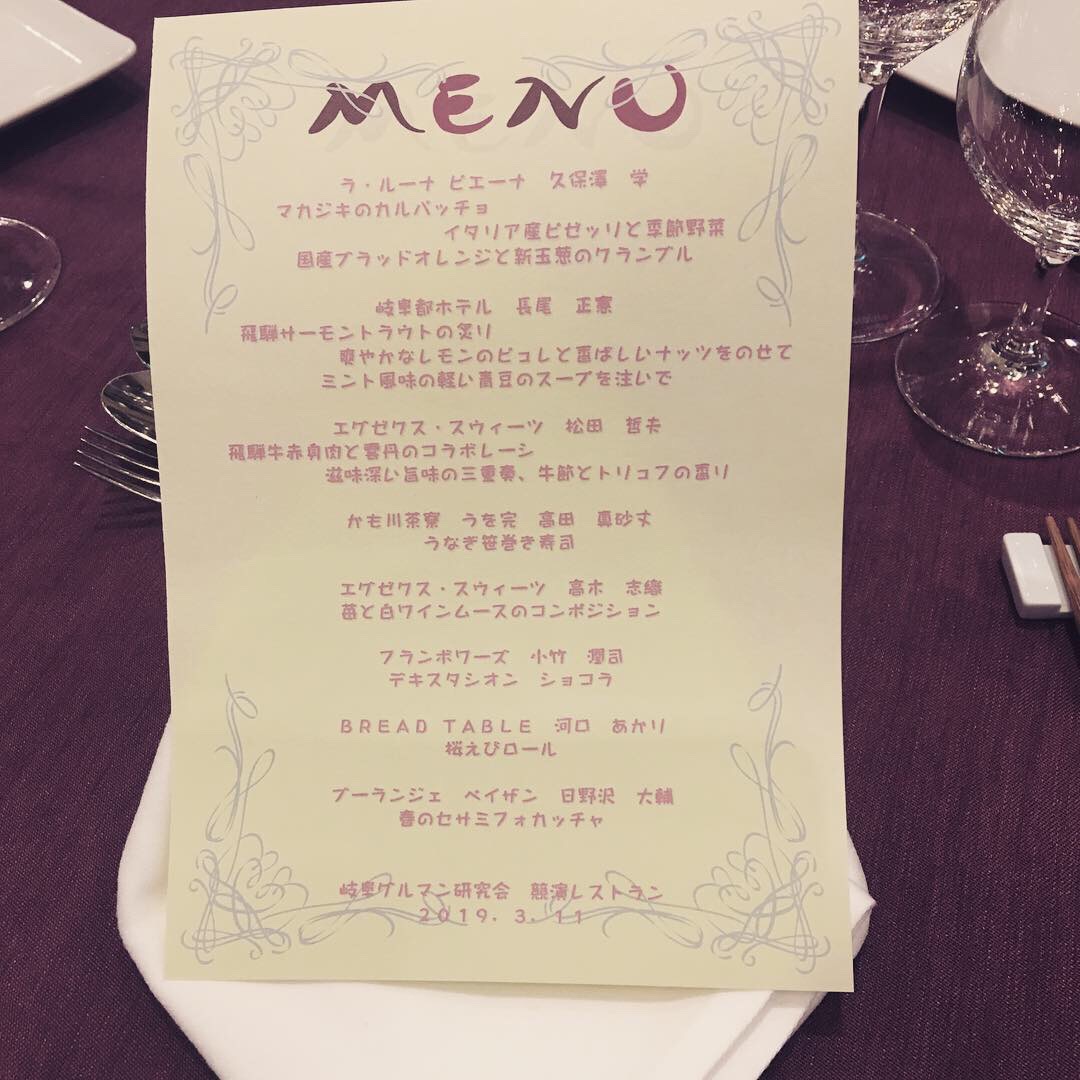 MENU
ラ・ルーナ ピエーナ　久保澤　学
マカジキのカルパッチョ
イタリア産ピゼッリと季節野菜
国産ブラッドオレンジと新玉葱のクランブル
岐阜都ホテル　長尾　正憲
飛騨サーモントラウトの炙り
爽やかなレモンのピュレと香ばしいナッツをのせて
ミント風味の軽い青豆のスープを注いで
エグゼクス・スウィーツ　松田　哲夫
飛騨牛赤身肉と雲丹のコラボレーシ
滋味深い旨味の三重奏、牛節とトリュフの香り
かも川茶寮　うを完　高田　真砂丈
うなぎ笹巻き寿司
エグゼクス・スウィーツ　高木　志織
苺と白ワインムースのコンポジション
フランボワーズ　小竹　潤司
デキスタシオン　ショコラ
BREAD TABLE　河口　あかり
桜えびロール
ブーランジェ　ペイザン　日野沢　大輔
春のセサミフォカッチャ
岐阜グルマン研究会　競演レストラン
2019. 3. 11